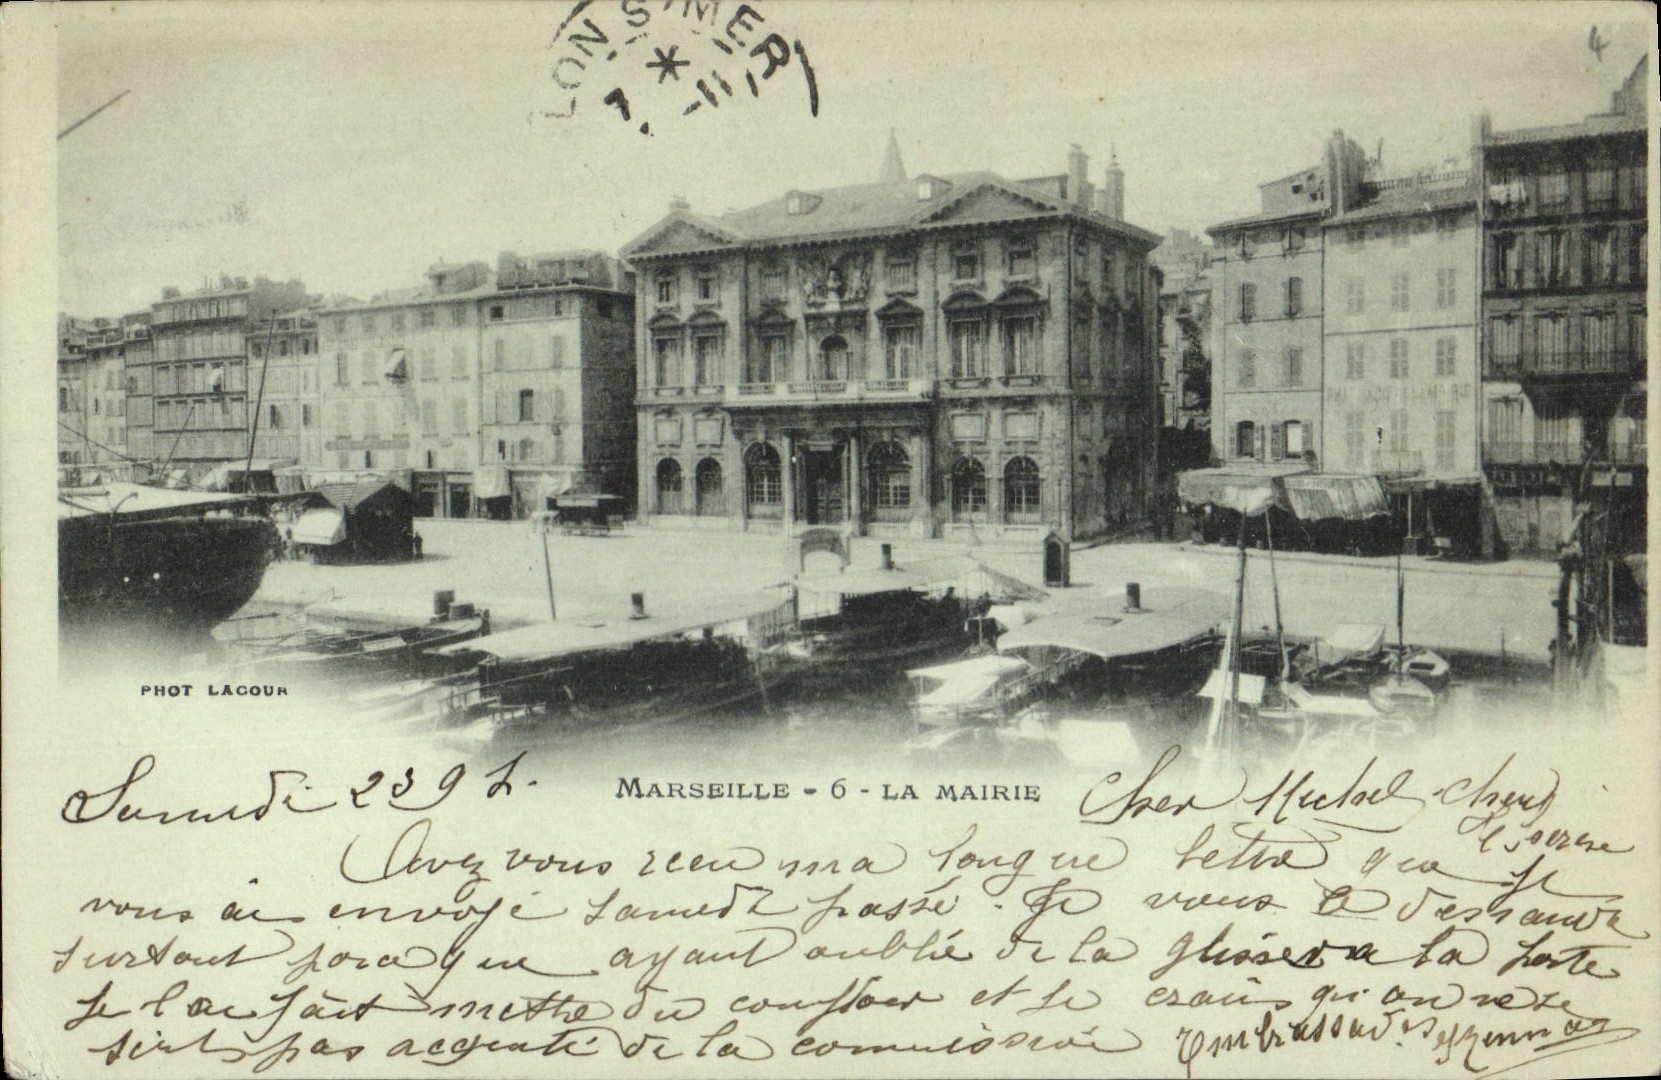 LON S/MER
7 * 11
4
PHOT LACOUR
MARSEILLE - 6 - LA MAIRIE
Samedi 23 9
Cher Michel Chere
Avez vous recu ma longue lettre que je
vous ai envoyé samedi passé. Je vous le demande
surtout parceque ayant oublié de la glisser a la poste
je l'ai fait mettre du comptoir et je crains qu'on ne se
soit pas acquitté de la commission